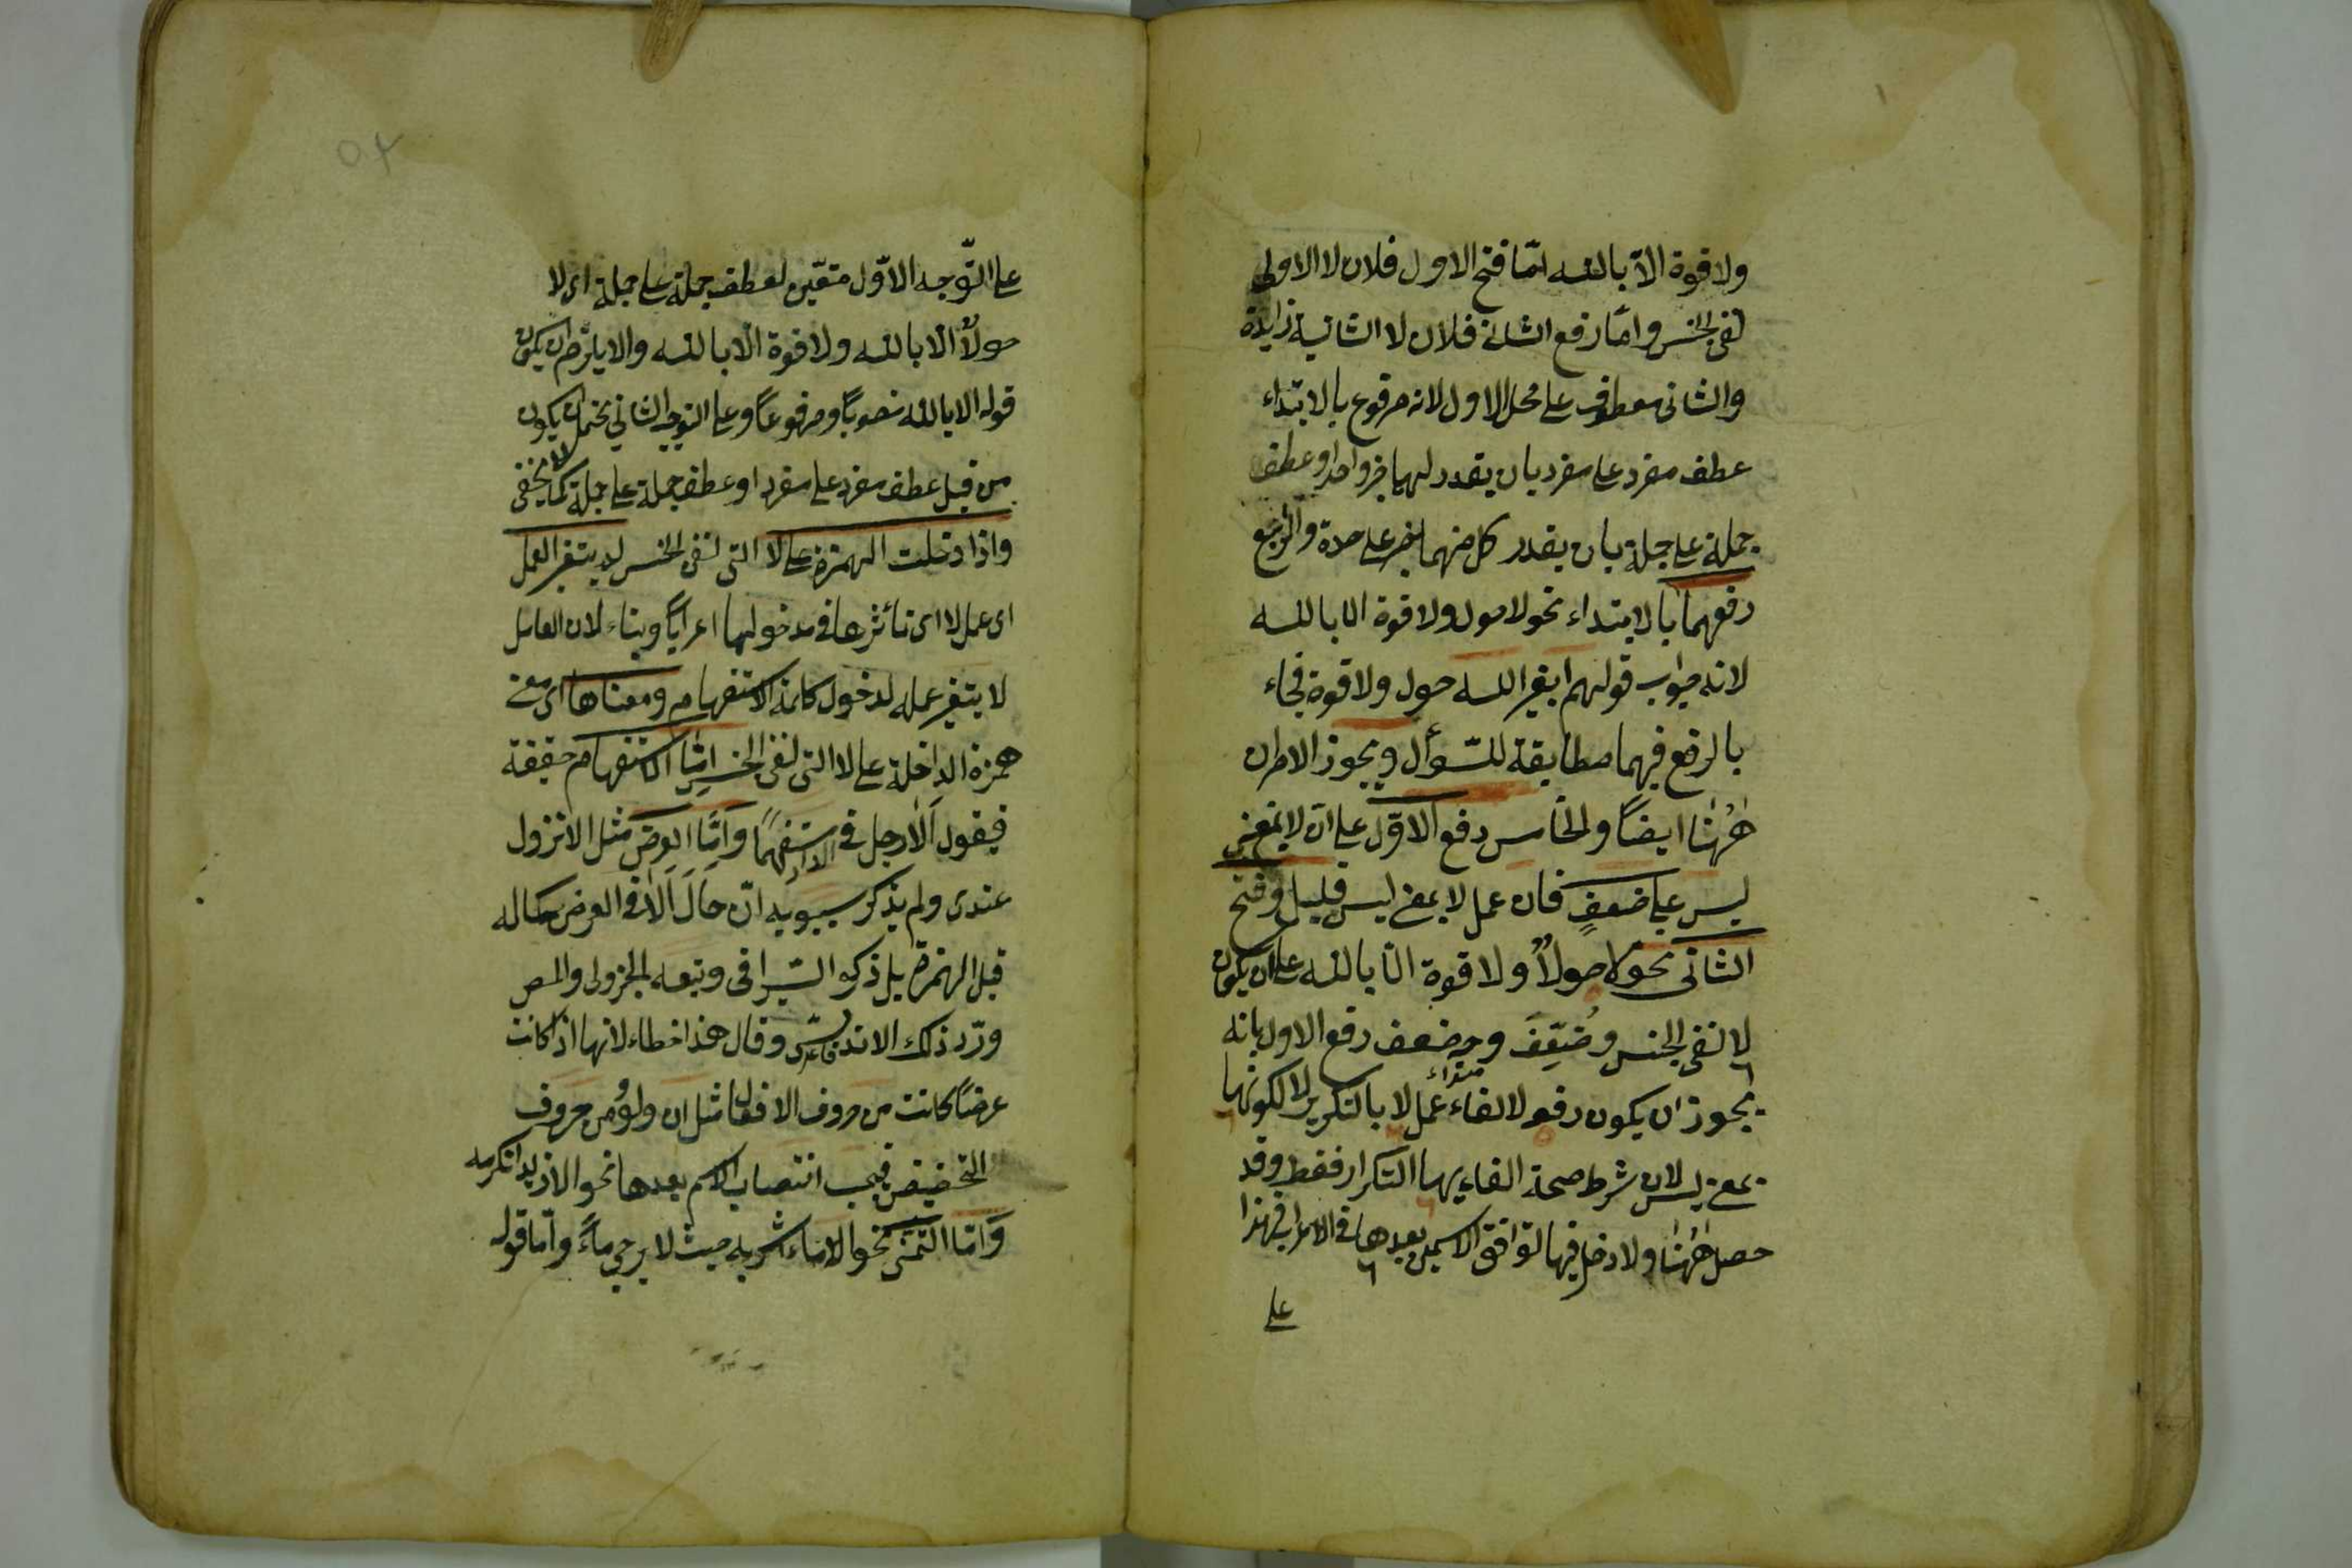 ولا قوة الّا بالله امّا فتح الاول فلان لا الاولى
لنفى الجنس وامّا رفع الثانى فلان لا الثانية زايدة
والثانى معطوف على محل الاول لانه مرفوع بالابتداء
عطف مفرد على مفرد بان يقدر لهما خبر واحد او عطف
جملة على جملة بان يقدر كل منهما خبر على حدة والرابع
رفعهما بالابتداء نحو لا حول ولا قوة الا بالله
لانه جواب قولهم ابغير الله حول ولا قوة فجاء
بالرفع فيهما مطابقة للسّؤال ويجوز الامران
هٰهُنٰا ايضاً والخامس رفع الاوّل على ان لا بمعنى
ليس على ضعفٍ فان عمل لا بمعنى ليس قليل وفتح
الثانى نحو لا حولٌ ولا قوة الّا بالله على ان يكون
لا لنفى الجنس وضُعِّفَ وجه ضعف رفع الاول بانه
يجوز ان يكون رفعه لالغاء عمل لا بالتكرير لا لكونها
مبتداء
بمعنى ليس لان شرط صحة الغايها التكرار فقط وقد
حصل هٰهُنٰا ولا دخل فيها لتوافق الاسمين بعدها فى الاعراب فهذا
على
٥٢
على التّوجيه الاوّل متعّين لعطف جملة على جملة اى لا
حولٌ الا بالله ولا قوة الّا بالله والا يلزم ان يكون
قوله الا بالله منصوباً ومرفوعاً وعلى التوجيه الثانى يحتمل ان يكون
من قبيل عطف مفرد على مفرد او عطف جملة على جملة كما لا يخفى
واذا دخلت الهمزة على لا التى لنفى الجنس لم يتغير العمل
اى عمل لا اى تأثيرها فى مدخولها اعراباً وبناء لان العامل
لا يتغير عمله لدخول كلمة الاستفهام ومعناها اى معنى
همزة الداخلة على لا التى لنفى الجنس امّا الاستفهام حقيقة
فيقول اَلاَ رجل فى الدار مستفهماً وَامّا العرض مثل الا نزول
عندى ولم يذكر سيبويه انّ حال اَلاَ فى العرض كحاله
قبل الهمزة بل ذكره السّيرافى وتبعه الجزولى والمص
وردّ ذلك الاندلسى وقال هذا خطاء لانها اذا كانت
عرضاً كانت من حروف الافعال مثل ان ولو وُحروف
التحضيض فيجب انتصاب الاسم بعدها نحو الا زيدا تكرمه
وَامّا التمنّى نحو الا ماء اشربه حيث لا يرجى ماءً وامّا قوله